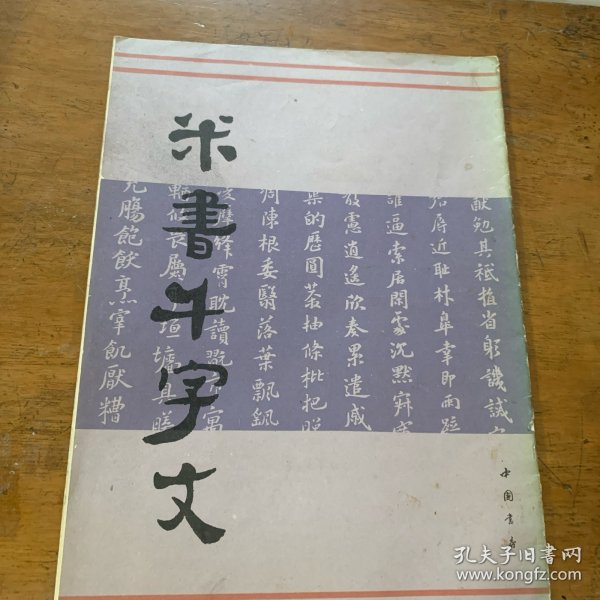 米書千字文
猷勉其祗植省躬譏誡
殆辱近恥林皋幸即兩疏
誰逼索居閑處沉默寂寥
散慮逍遙欣奏累遣慼
渠的歷園莽抽條枇把晚
凋陳根委翳落葉飄飖
淩摩絳霄耽讀翫市寓
輶攸畏屬垣墻具膳
充腸飽飫烹宰飢厭糟
中国书店
孔夫子旧书网
www.kongfz.com